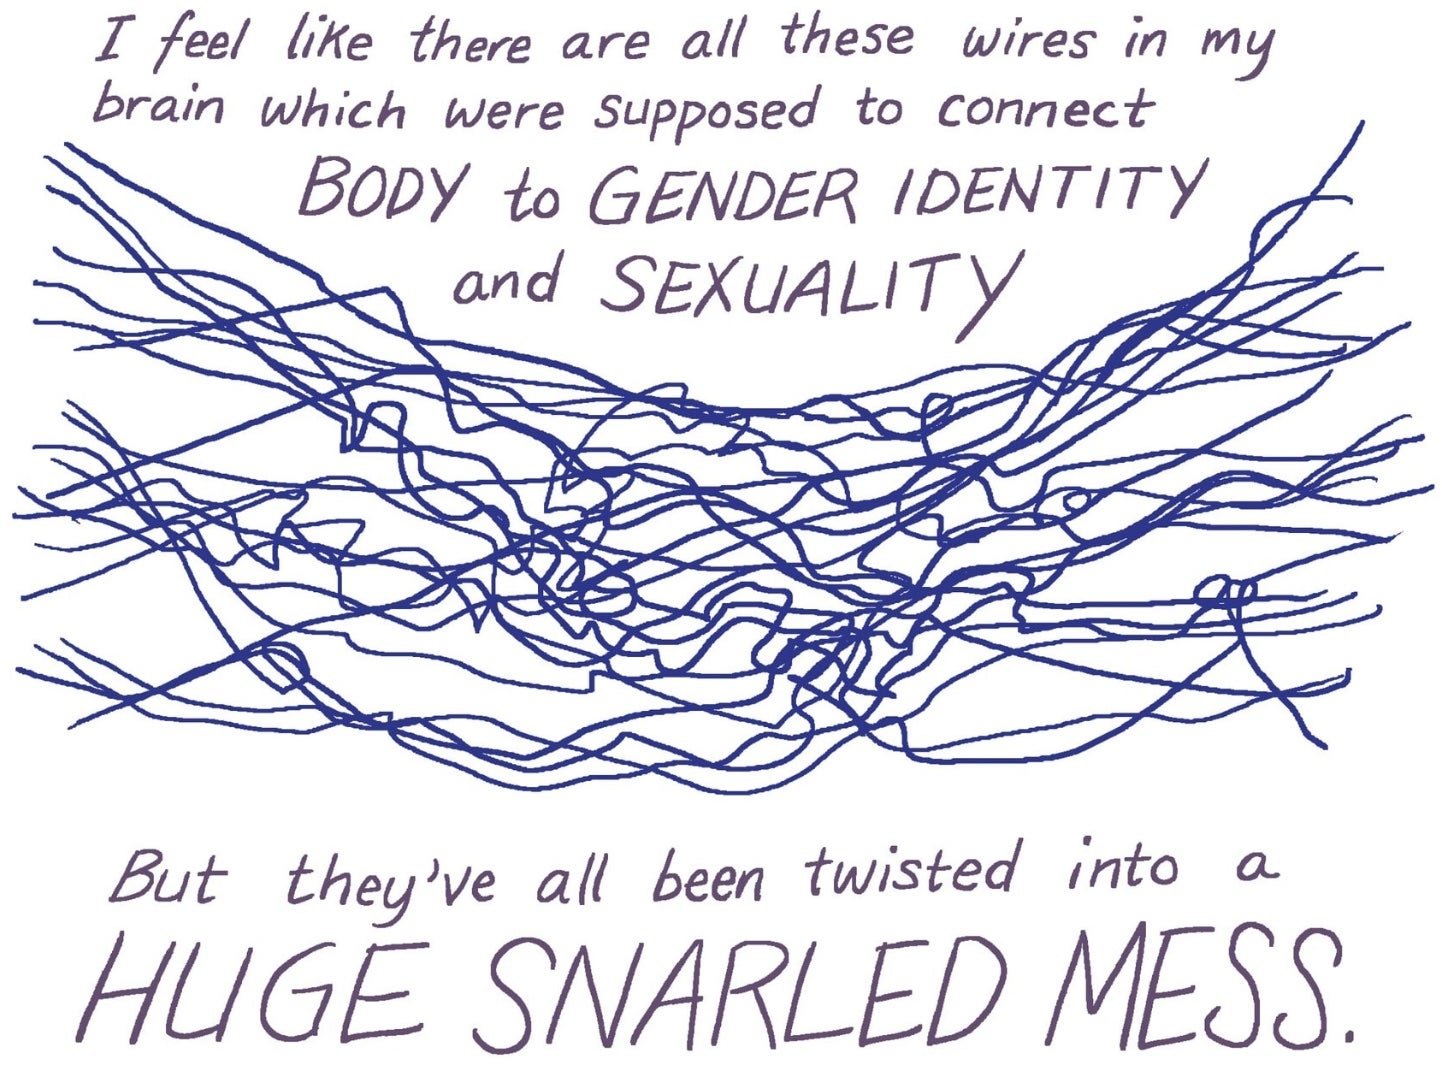 I feel like there are all these wires in my
brain which were supposed to connect
BODY to GENDER IDENTITY
and SEXUALITY
But they've all been twisted into a
HUGE SNARLED MESS.